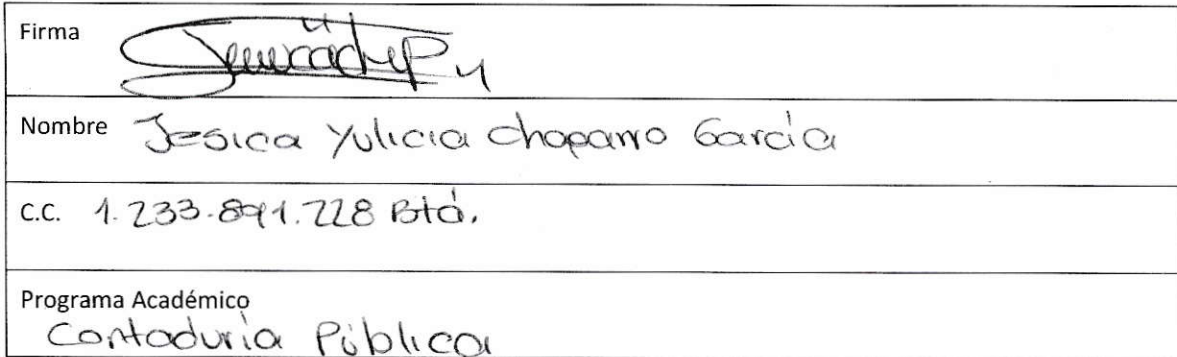 Firma
Nombre Jesica Yulicia Chaparro García
C.C. 1.233.891.728 Btá.
Programa Académico
Contaduría Pública